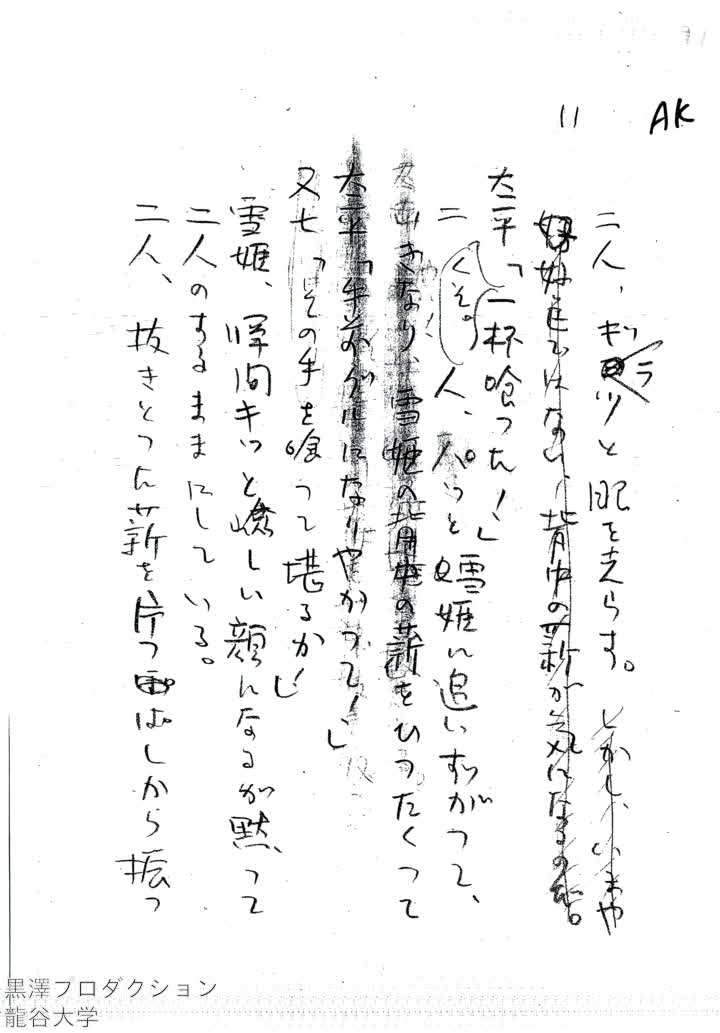 91
AK
11
二人、キラッと眼を走らす。しかし、いまや
はない、背中の薪が気になるのだ。
太平「一杯喰った!」
くそ。
二人、パッと雪姫に追いすがって、
きなり、雪姫の背中の薪をひったくって
太平「手前グルになりやがって!」
又七「その手を喰って堪るか!」
雪姫、瞬間キッと嶮しい顔になるが黙って
二人のするままにしている。
二人、抜きとった薪を片っぱしから振っ
黒澤プロダクション
龍谷大学